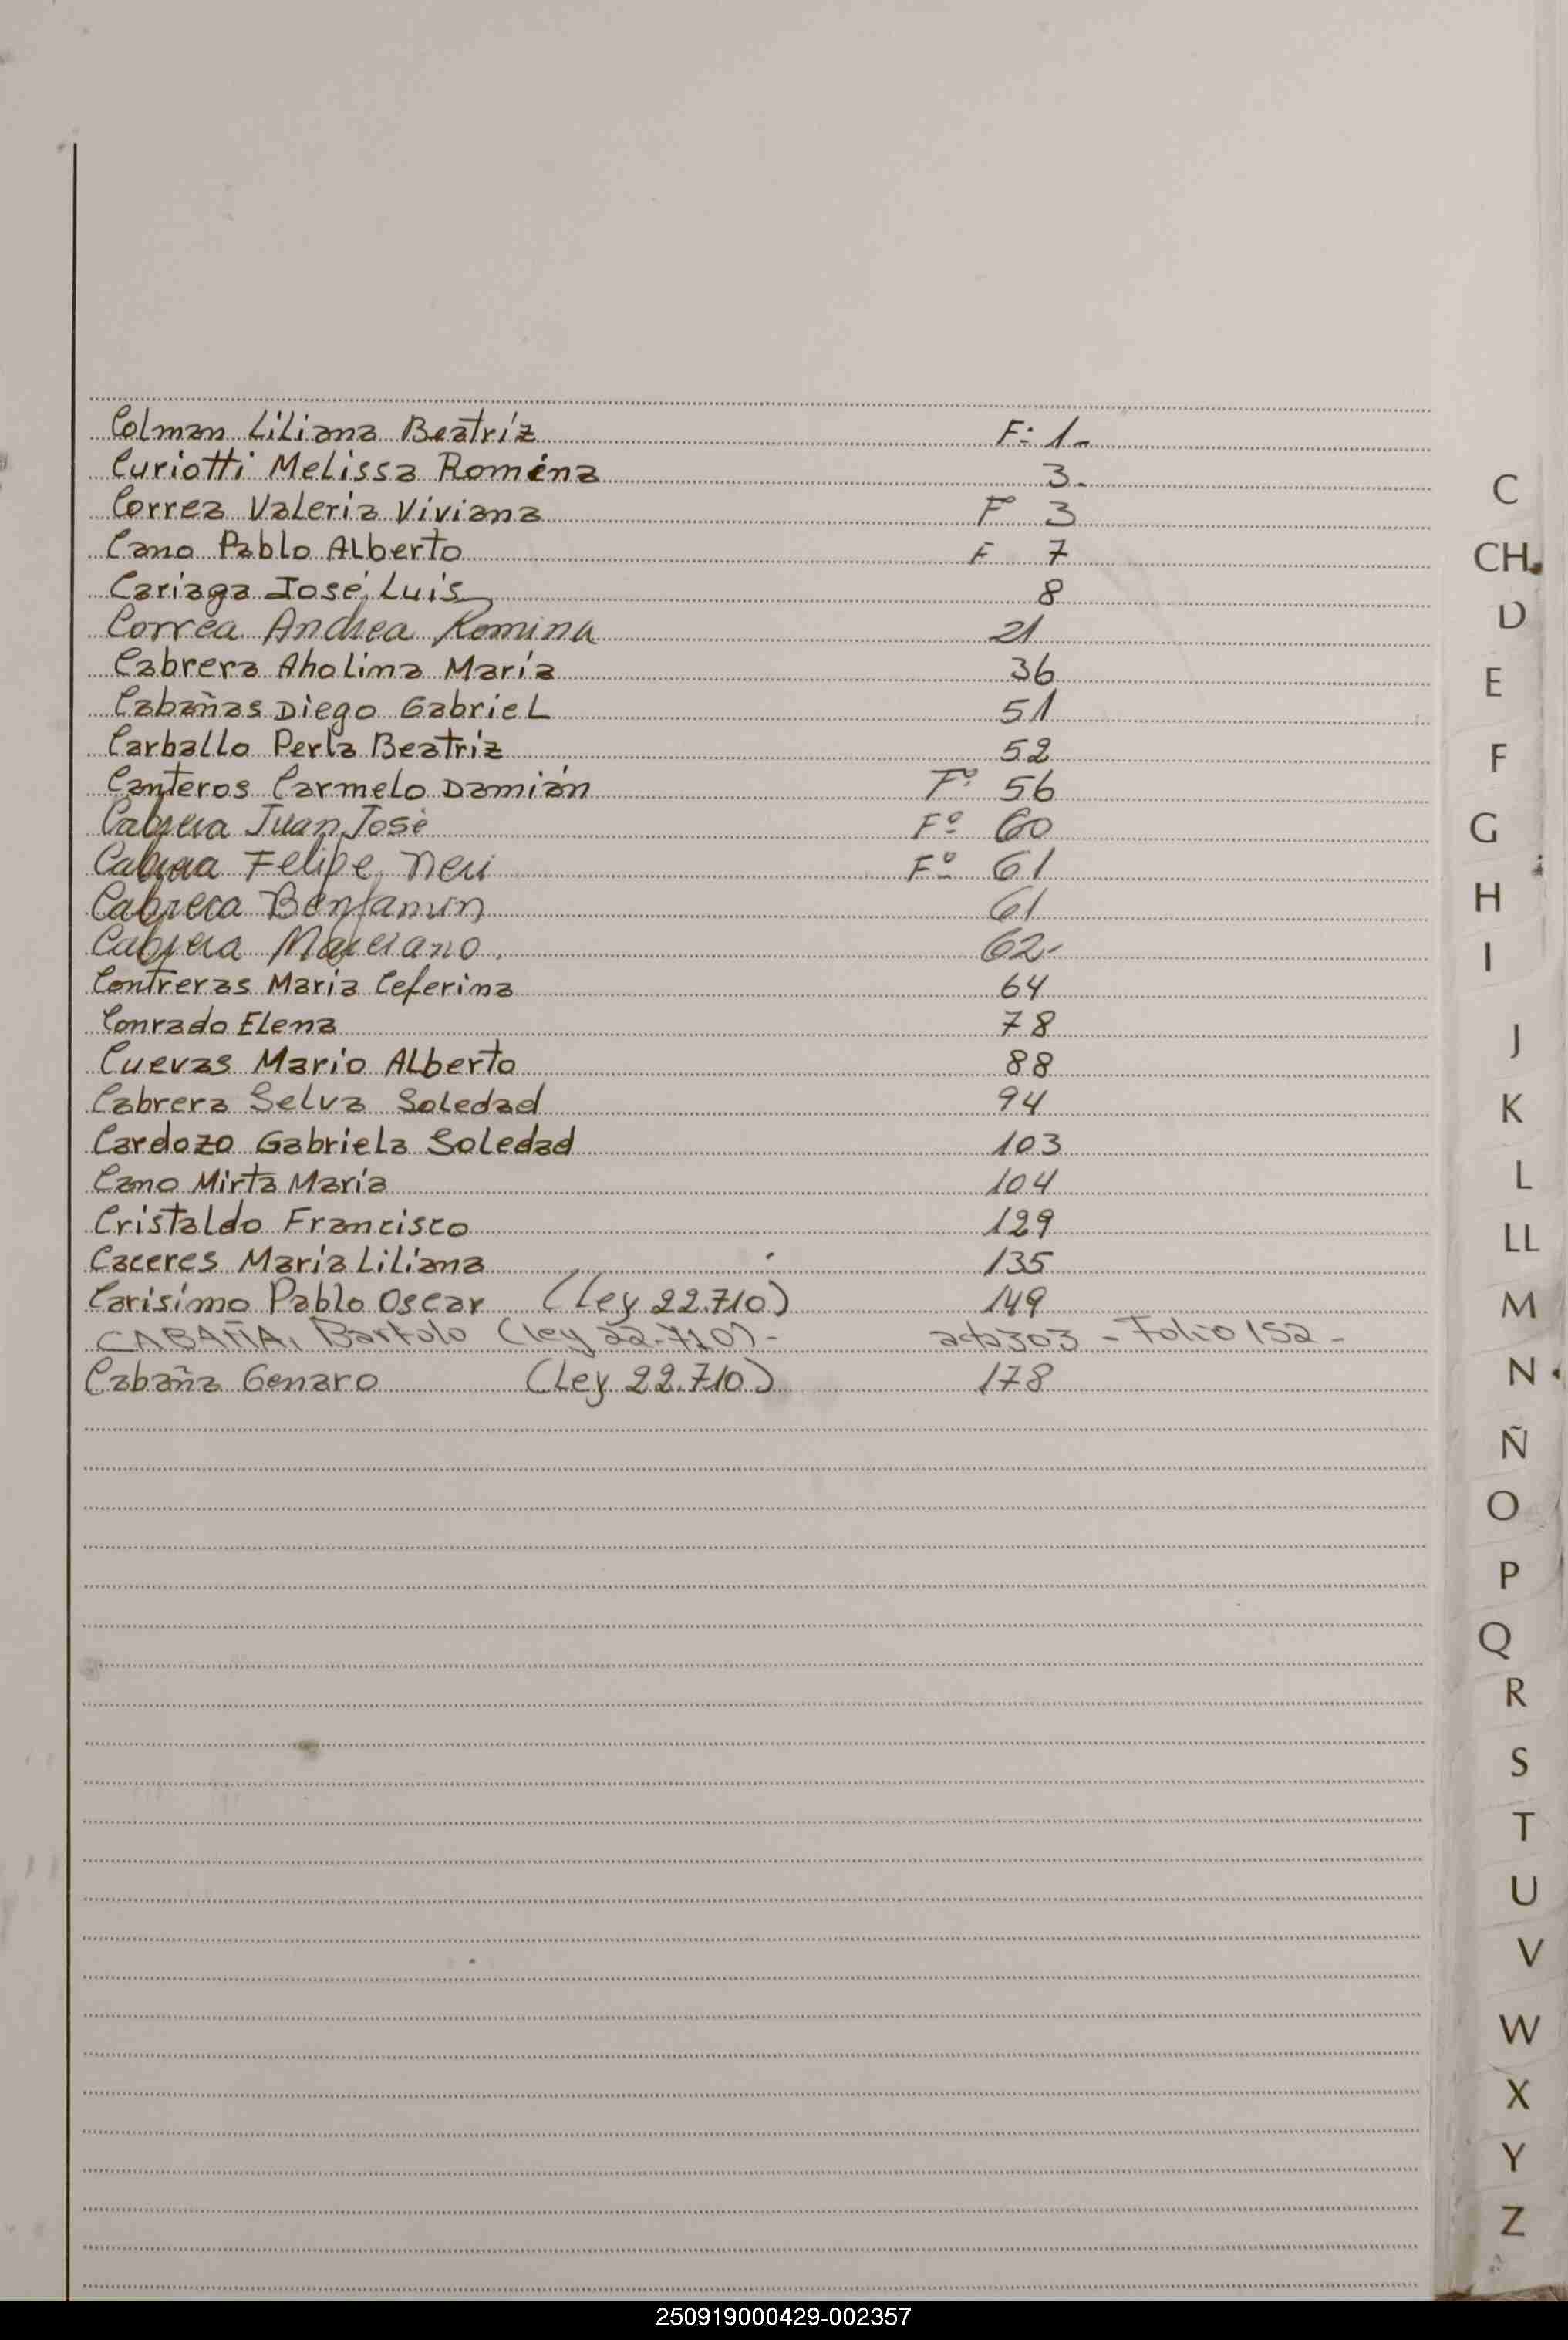 Colman Liliana Beatríz F: 1-
Curiotti Melissa Roména 3-
Correa Valeria Viviana F 3
Cano Pablo Alberto F 7
Cariaga José Luis 8
Correa Andrea Romina 21
Cabrera Aholima María 36
Cabañas Diego Gabriel 51
Carballo Perla Beatríz 52
Canteros Carmelo Damián Fº 56
Cabrera Juan José Fº 60
Cabrera Felipe Neri Fº 61
Cabrera Benjamin 61
Cabrera Marciano. 62-
Contreras María Ceferina 64
Conrado Elena 78
Cuevas Mario Alberto 88
Cabrera Selva Soledad 94
Cardozo Gabriela Soledad 103
Cano Mirta María 104
Cristaldo Francisco 129
Caceres María Liliana 135
Carísimo Pablo Oscar (Ley 22.710) 149
CABAÑA, Bartolo (ley 22.710) - acta 303 - Folio 152 -
Cabaña Genaro (Ley 22.710) 178
C
CH
D
E
F
G
H
I
J
K
L
LL
M
N
Ñ
O
P
Q
R
S
T
U
V
W
X
Y
Z
250919000429-002357